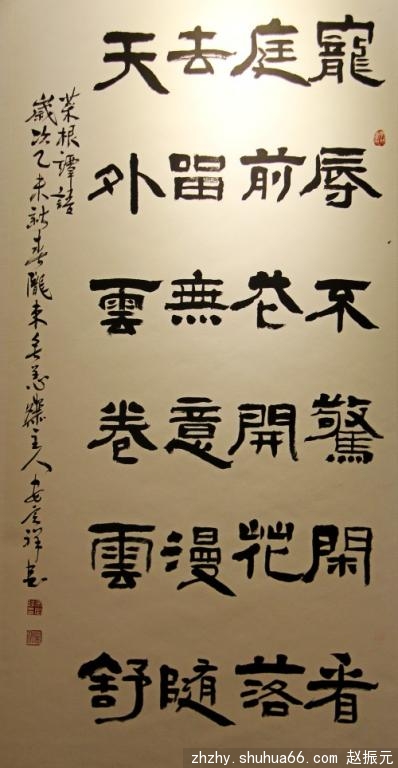 寵辱不驚閑看
庭前花開花落
去留無意漫隨
天外雲卷雲舒
菜根譚語
歲次乙未新春隴東主人祥書
zhzhy.shuhua66.com 赵振元